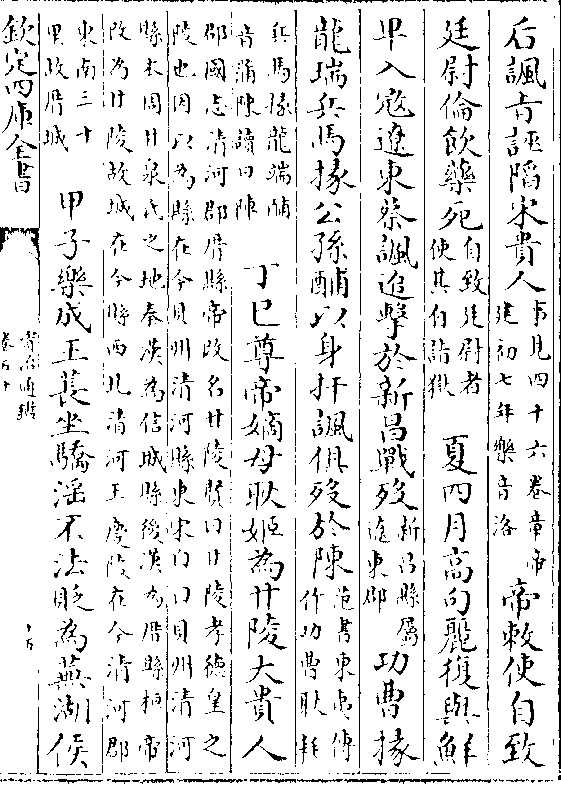 后諷旨誣陷宋貴人事見四十六卷章帝建初七年樂音洛帝敕使自致
廷尉倫飲藥死自致廷尉者使其自詣獄夏四月高句麗復與鮮
卑入寇遼東蔡諷追擊於新昌戰歿新昌縣屬遼東郡功曹掾
龍端兵馬掾公孫酺以身扞諷俱歿於陳范書東夷傳作功曹耿耗
兵馬掾龍端酺音蒲陳讀曰陣丁巳尊帝嫡母耿姬為甘陵大貴人
郡國志清河郡厝縣帝改名甘陵賢曰甘陵孝德皇之
陵也因以為縣在今貝州清河縣東宋白曰貝州清河
縣本周甘泉氏之地秦漢為信城縣後漢為厝縣桓帝
改為甘陵故城在今縣西北清河王慶陵在今清河郡
東南三十里故厝城甲子樂成王萇坐驕淫不法貶為蕪湖侯
欽定四庫全書
資治通鑑
卷五十